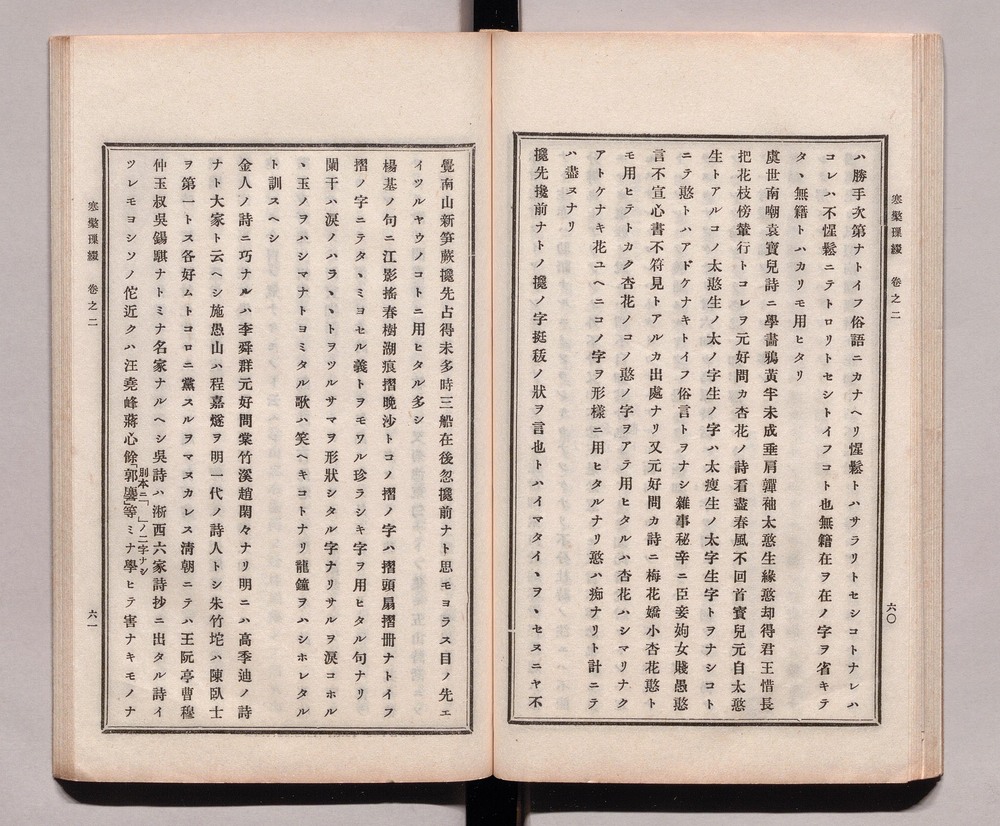 寒檠璅綴　卷之二
六〇
ハ勝手次第ナトイフ俗語ニカナヘリ惺鬆トハサラリトセシコトナレハ
コレハ不惺鬆ニテトロリトセシトイフコト也無籍在ヲ在ノ字ヲ省キテ
タヽ無籍トハカリモ用ヒタリ
虞世南嘲袁寶兒詩ニ學畵鴉黃半未成垂肩嚲袖太憨生緣憨却得君王惜長
把花枝傍輦行トコレヲ元好問カ杏花ノ詩看盡春風不回首寶兒元自太憨
生トアルコノ太憨生ノ太ノ字生ノ字ハ太瘦生ノ太字生字トヲナシコト
ニテ憨トハアドケナキトイフ俗言トヲナシ雜事秘辛ニ臣妾姁女賤愚憨
言不宣心書不符見トアルカ出處ナリ又元好問カ詩ニ梅花嬌小杏花憨ト
モ用ヒテトカク杏花ノコノ憨ノ字ヲアテ用ヒタルハ杏花ハシマリナク
アトケナキ花ユヘニコノ字ヲ形樣ニ用ヒタルナリ憨ハ痴ナリト計ニテ
ハ盡ヌナリ
攙先攙前ナトノ攙ノ字挺秡ノ狀ヲ言也トハイマタイヽヲヽセスニヤ不
覺南山新笋蕨攙先占得未多時三船在後忽攙前ナト思モヨラス目ノ先エ
イツルヤウノコトニ用ヒタル多シ
楊基ノ句ニ江影搖春樹湖痕摺晩沙トコノ摺ノ字ハ摺頭扇摺冊ナトイフ
摺ノ字ニテタヽミヨセル義トヲモワル珍ラシキ字ヲ用ヒタル句ナリ
闌干ハ淚ノハラヽヽトヲツルサマヲ形狀シタル字ナリサルヲ淚コホル
ヽ玉ノヲハシマナトヨミタル歌ハ笑ヘキコトナリ龍鐘ヲハシホレタル
ト訓スヘシ
金人ノ詩ニ巧ナルハ李舜群元好問棠竹溪趙閑々ナリ明ニハ高季迪ノ詩
ナト大家ト云ヘシ施愚山ハ程嘉燧ヲ明一代ノ詩人トシ朱竹垞ハ陳臥士
ヲ第一トス各好ムトコロニ黨スルヲマヌカレス淸朝ニテハ王阮亭曹穆
仲玉叔吳錫騏ナトミナ名家ナルヘシ吳詩ハ淅西六家詩抄ニ出タル詩イ
ツレモヨシソノ佗近クハ汪堯峰蔣心餘「郭麐」等ミナ學ヒテ害ナキモノナ
則本ニ「　」ノ二字ナシ
寒檠璅綴　卷之二
六一